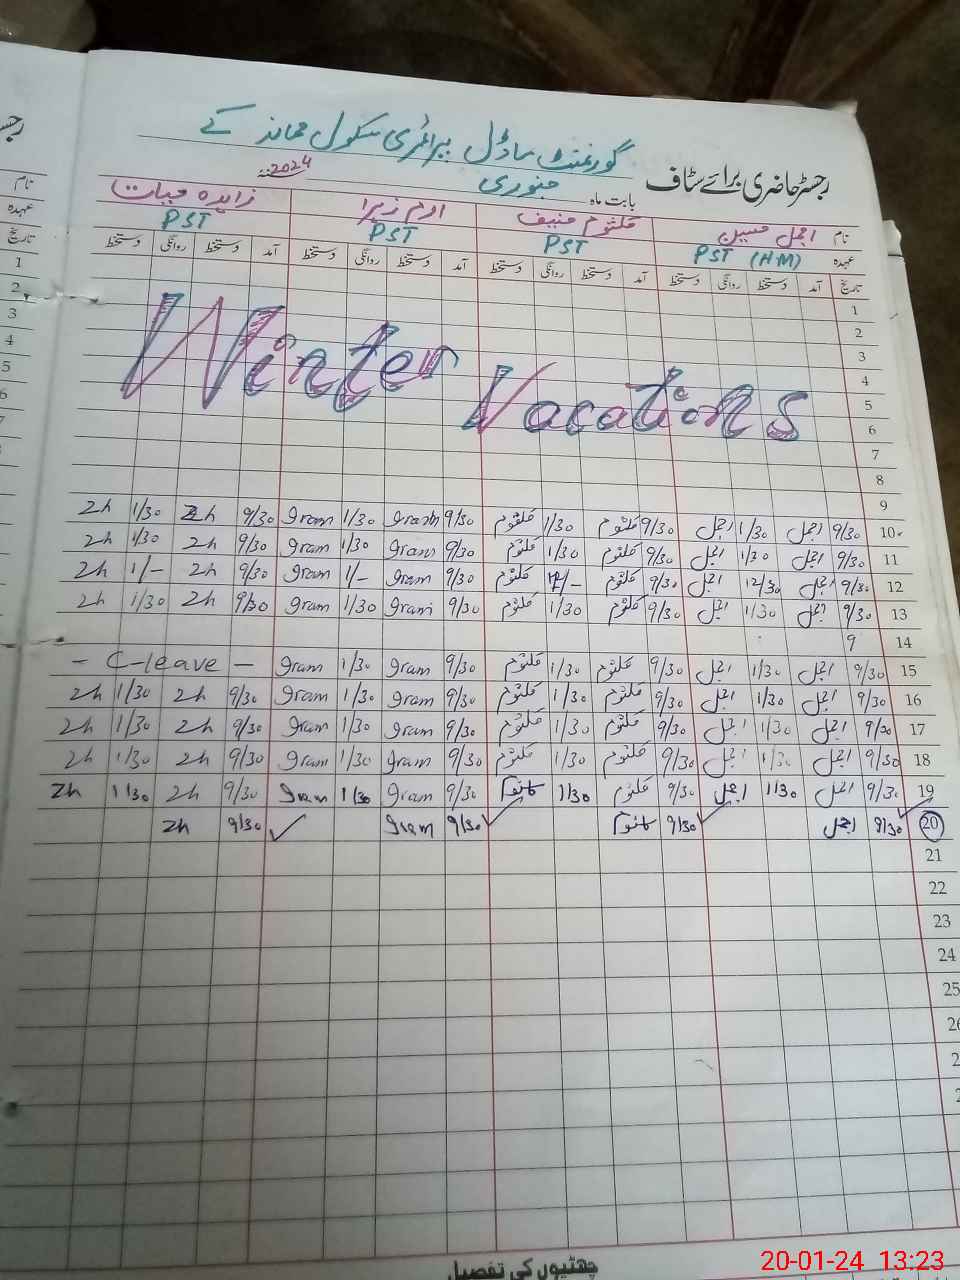 گورنمنٹ ماڈل پرائمری سکول ممانہ کے
رجسٹر حاضری برائے سٹاف
بابت ماہ جنوری 2024
نام اجمل حسین کلثوم حنیف ارم زہرا زاہدہ حیات
عہدہ PST (HM) PST PST PST
تاریخ آمد دستخط روانگی دستخط آمد دستخط روانگی دستخط آمد دستخط روانگی دستخط آمد دستخط روانگی دستخط
1
2
3
4
5
6
7
8
Winter Vacations
9
10 9/30 اجمل 1/30 اجمل 9/30 کلثوم 1/30 کلثوم 9/30 Iram 1/30 Iram 9/30 Zh 1/30 Zh
11 9/30 اجمل 1/30 اجمل 9/30 کلثوم 1/30 کلثوم 9/30 Iram 1/30 Iram 9/30 Zh 1/30 Zh
12 9/30 اجمل 12/30 اجمل 9/30 کلثوم کلثوم 9/30 Iram 1/- Iram 9/30 Zh 1/- Zh
13 9/30 اجمل 1/30 اجمل 9/30 کلثوم 1/30 کلثوم 9/30 Iram 1/30 Iram 9/30 Zh 1/30 Zh
14 9
15 9/30 اجمل 1/30 اجمل 9/30 کلثوم 1/30 کلثوم 9/30 Iram 1/30 Iram - C-leave -
16 9/30 اجمل 1/30 اجمل 9/30 کلثوم 1/30 کلثوم 9/30 Iram 1/30 Iram 9/30 Zh 1/30 Zh
17 9/30 اجمل 1/30 اجمل 9/30 کلثوم 1/30 کلثوم 9/30 Iram 1/30 Iram 9/30 Zh 1/30 Zh
18 9/30 اجمل 1/30 اجمل 9/30 کلثوم 1/30 کلثوم 9/30 Iram 1/30 Iram 9/30 Zh 1/30 Zh
19 9/30 اجمل 1/30 اجمل 9/30 کلثوم 1/30 کلثوم 9/30 Iram 1/30 Iram 9/30 Zh 1/30 Zh
20 9/30 اجمل 9/30 کلثوم 9/30 Iram 9/30 Zh
21
22
23
24
25
26
2
2
چھٹیوں کی تفصیل
20-01-24 13:23